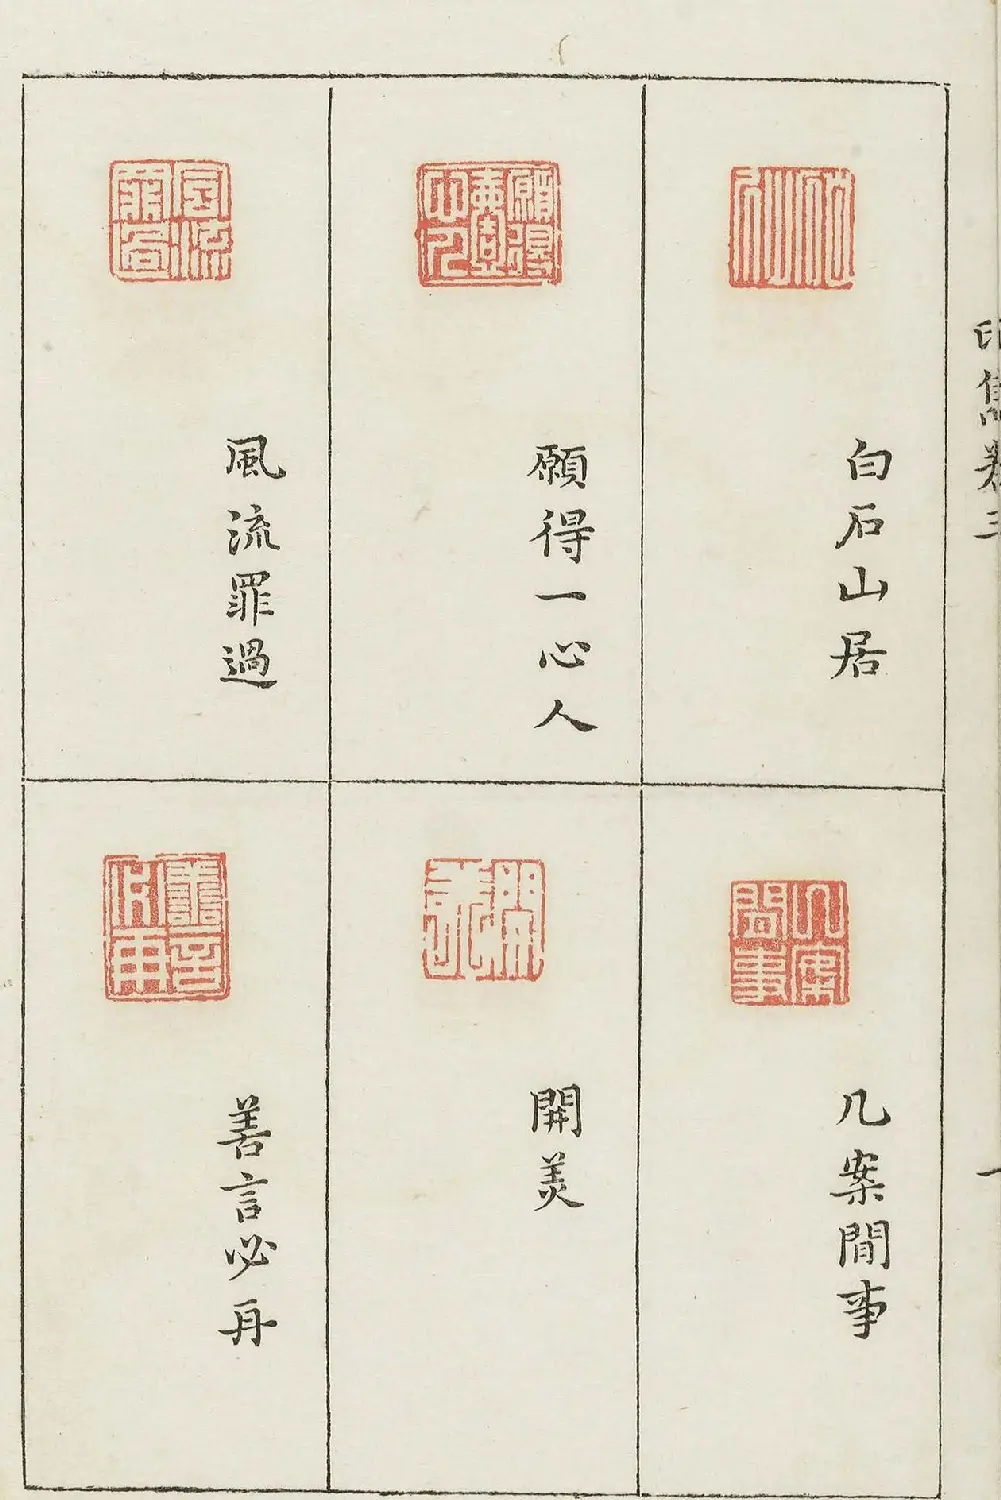 印雋卷三
一
白石山居
願得一心人
風流罪過
几案閒事
開美
善言必再